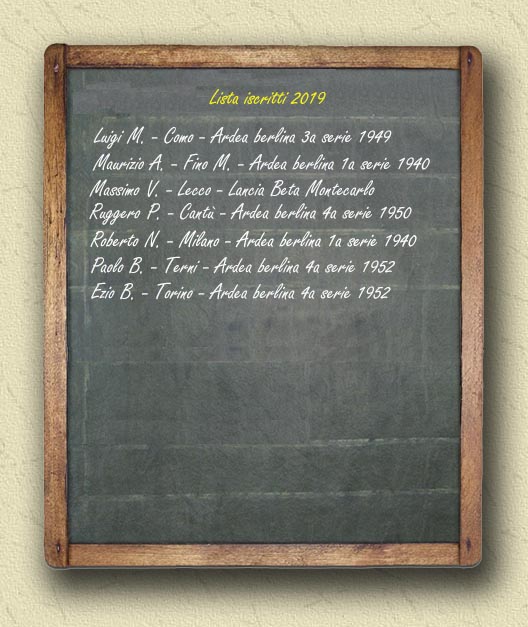 Lista iscritti 2019
Luigi M. - Como - Ardea berlina 3a serie 1949
Maurizio A. - Fino M. - Ardea berlina 1a serie 1940
Massimo V. - Lecco - Lancia Beta Montecarlo
Ruggero P. - Cantù - Ardea berlina 4a serie 1950
Roberto N. - Milano - Ardea berlina 1a serie 1940
Paolo B. - Terni - Ardea berlina 4a serie 1952
Ezio B. - Torino - Ardea berlina 4a serie 1952